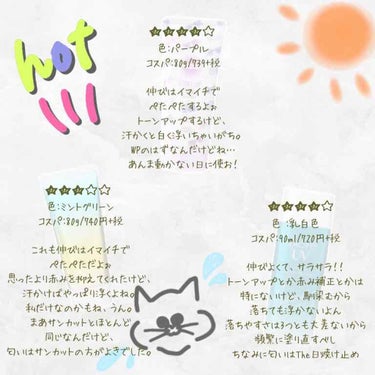 hot
★★★★☆
色:パープル
コスパ:80g/739+税
伸びはイマイチで
ぺたぺたするよぉ
トーンアップするけど、
汗かくと白く浮いちゃいがち。
WPのはずなんだけどね…
あんま動かない日に使お!
★★★☆☆
色:ミントグリーン
コスパ:80g/740円+税
これも伸びはイマイチで
ぺたぺただよぉ
思ったより赤みを抑えてくれたけど、
汗かけばやっぱり浮くよね。
私だけなのかもね、うん。
まあサンカットとほとんど
同じなんだけど、
匂いはサンカットの方がよきでした。
★★★★☆
色:乳白色
コスパ:90ml/720円+税
伸びよくて、サラサラ!!
トーンアップとか赤み補正とかは
特にないけど、馴染むから
落ちても浮かないよん
落ちやすさは3つとも大差ないから
頻繁に塗り直すべし
ちなみに匂いはThe日焼け止め